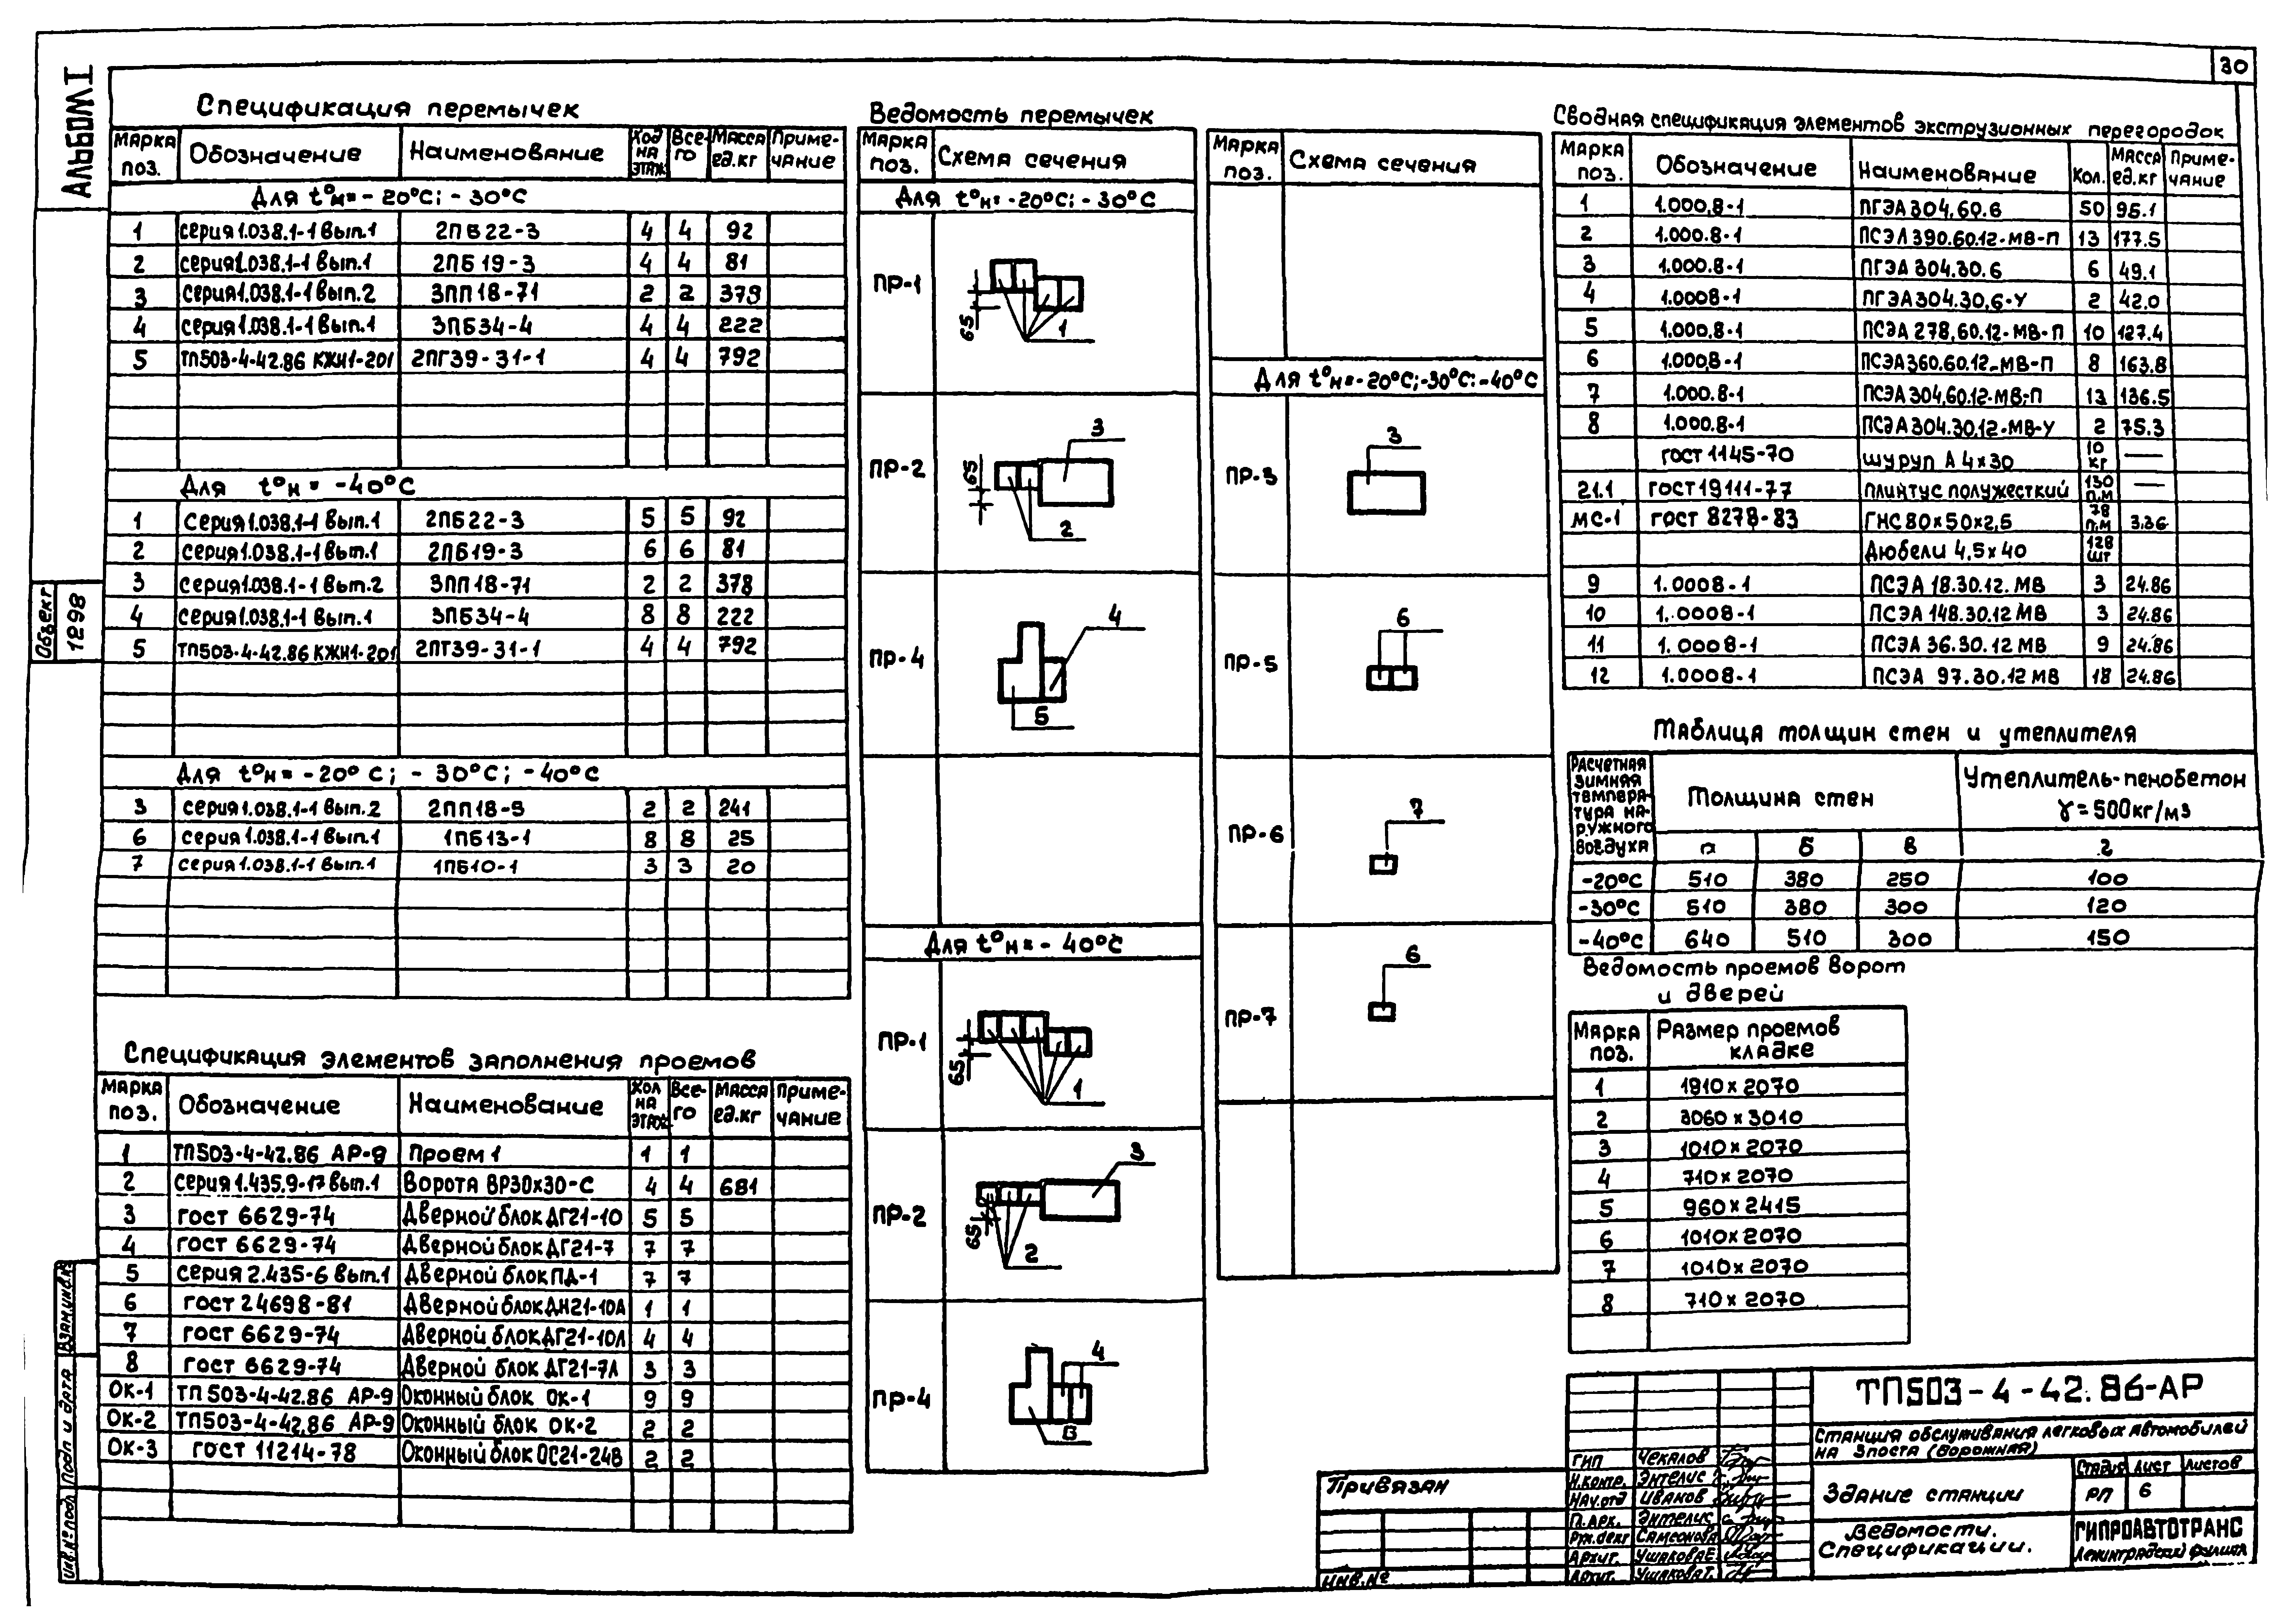 30
Альбом I
Объект 1298
Взам.инв.№
Подп и дата
Инв.№ подл
Спецификация перемычек
Марка поз. Обозначение Наименование Кол на этаж Всего Масса ед.кг Примечание
Для t°н=-20°С; -30°С
1 серия1.038.1-1 вып.1 2ПБ22-3 4 4 92
2 серия1.038.1-1 вып.1 2ПБ19-3 4 4 81
3 серия1.038.1-1 вып.2 3ПП18-71 2 2 378
4 серия1.038.1-1 вып.1 3ПБ34-4 4 4 222
5 ТП503-4-42.86 КЖИ1-201 2ПГ39-31-1 4 4 792
Для t°н = -40°С
1 Серия1.038.1-1 вып.1 2ПБ22-3 5 5 92
2 серия1.038.1-1 вып.1 2ПБ19-3 6 6 81
3 серия1.038.1-1 вып.2 3ПП18-71 2 2 378
4 серия1.038.1-1 вып.1 3ПБ34-4 8 8 222
5 ТП503-4-42.86 КЖИ1-201 2ПГ39-31-1 4 4 792
Для t°н= -20°С; -30°С; -40°С
3 серия1.038.1-1 вып.2 2ПП18-5 2 2 241
6 серия1.038.1-1 вып.1 1ПБ13-1 8 8 25
7 серия1.038.1-1 вып.1 1ПБ10-1 3 3 20
Спецификация элементов заполнения проемов
Марка поз. Обозначение Наименование Кол на этаж Всего Масса ед.кг Примечание
1 ТП503-4-42.86 АР-9 Проем 1 1 1
2 Серия1.435.9-17 вып.1 Ворота ВР30х30-С 4 4 681
3 ГОСТ 6629-74 Дверной блок ДГ21-10 5 5
4 ГОСТ 6629-74 Дверной блок ДГ21-7 7 7
5 серия 2.435-6 вып.1 Дверной блок ПД-1 7 7
6 ГОСТ 24698-81 Дверной блок ДН21-10А 1 1
7 ГОСТ 6629-74 Дверной блок ДГ21-10Л 4 4
8 ГОСТ 6629-74 Дверной блок ДГ21-7Л 3 3
ОК-1 ТП 503-4-42.86 АР-9 Оконный блок ОК-1 9 9
ОК-2 ТП503-4-42.86 АР-9 Оконный блок ОК-2 2 2
ОК-3 ГОСТ 11214-78 Оконный блок ОС21-24В 2 2
Ведомость перемычек
Марка поз. Схема сечения
Для t°н=-20°С; -30°С
ПР-1 65 1
ПР-2 65 3 2
ПР-4 4 5
Для t°н=-40°С
ПР-1 65 1
ПР-2 65 3 2
ПР-4 4 Б
Марка поз. Схема сечения
Для t°н=-20°С;-30°С;-40°С
ПР-3 3
ПР-5 6
ПР-6 7
ПР-7 6
Сводная спецификация элементов экструзионных перегородок
Марка поз. Обозначение Наименование Кол. Масса ед.кг Примечание
1 1.000.8-1 ПГЭА304.60.6 50 95.1
2 1.000.8-1 ПСЭА390.60.12-МВ-П 13 177.5
3 1.000.8-1 ПГЭА304.30.6 6 49.1
4 1.0008-1 ПГЭА304.30.6-У 2 42.0
5 1.000.8-1 ПСЭА278.60.12-МВ-П 10 127.4
6 1.000.8-1 ПСЭА360.60.12-МВ-П 8 163.8
7 1.000.8-1 ПСЭА304.60.12-МВ-П 13 136.5
8 1.000.8-1 ПСЭА304.30.12-МВ-У 2 75.3
ГОСТ 1145-70 шуруп А 4х30 10 кг —
21.1 ГОСТ19111-77 плинтус полужесткий 130 п.м —
МС-1 ГОСТ 8278-83 ГНС80х50х2,5 78 п.м 3.36
Дюбели 4.5х40 128 шт
9 1.0008-1 ПСЭА 18.30.12.МВ 3 24.86
10 1.0008-1 ПСЭА 148.30.12 МВ 3 24.86
11 1.0008-1 ПСЭА 36.30.12 МВ 9 24.86
12 1.0008-1 ПСЭА 97.30.12 МВ 18 24.86
Таблица толщин стен и утеплителя
Расчетная зимняя температура наружного воздуха Толщина стен Утеплитель-пенобетон γ=500кг/м3
а б в г
-20°С 510 380 250 100
-30°С 510 380 300 120
-40°С 640 510 300 150
Ведомость проемов ворот
и дверей
Марка поз. Размер проемов кладке
1 1910х2070
2 3060х3010
3 1010х2070
4 710х2070
5 960х2415
6 1010х2070
7 1010х2070
8 710х2070
Привязан
Инв.№
ГИП Чекалов
Н.контр. Энтелис
Нач.отд Иванов
Гл.арх. Энтелис
Рук.бекг Самсонова
Архит. Ушакова Е.
Архит. Ушакова Т.
ТП503-4-42.86-АР
Станция обслуживания легковых автомобилей
на 3поста (дорожная)
Здание станции
Стадия Лист Листов
РП 6
Ведомости.
Спецификации.
Гипроавтотранс
Ленинградский филиал